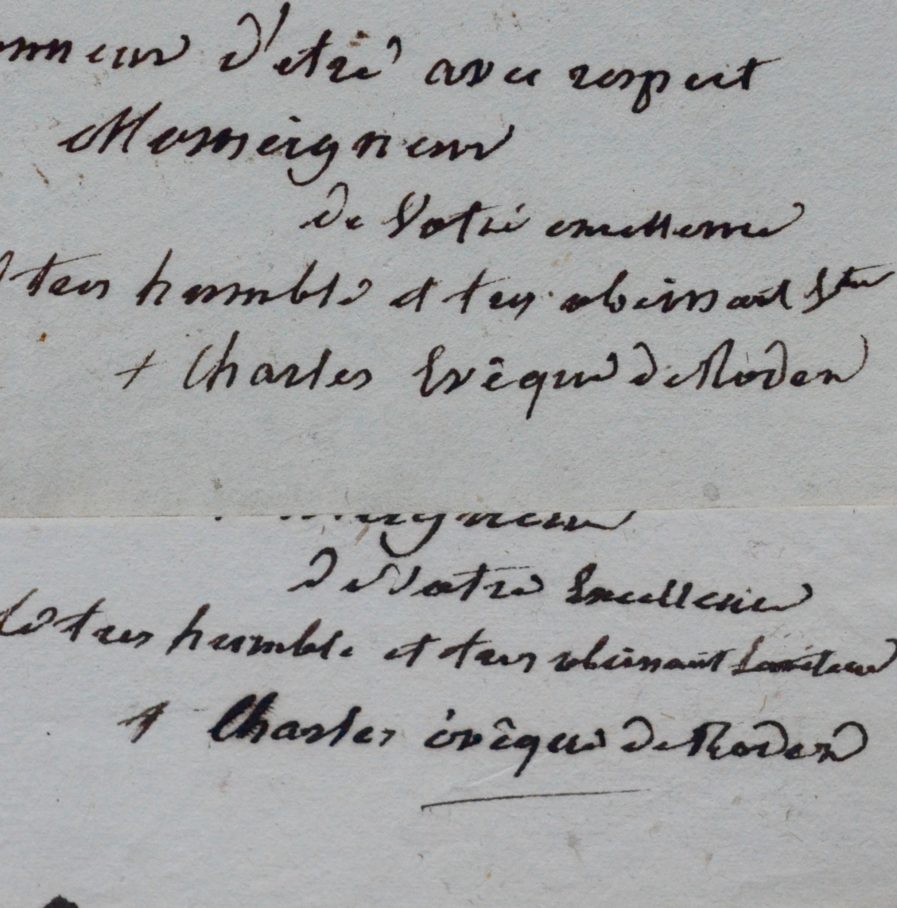 onneur d'etre avec respect
Monseigneur
de Votre excellence
tres humble et tres obeissant Steur
+ Charles Evêque de Rodez
eigneur
de Votre Excellence
le tres humble et tres obeissant Serviteur
+ Charles évêque de Rodez